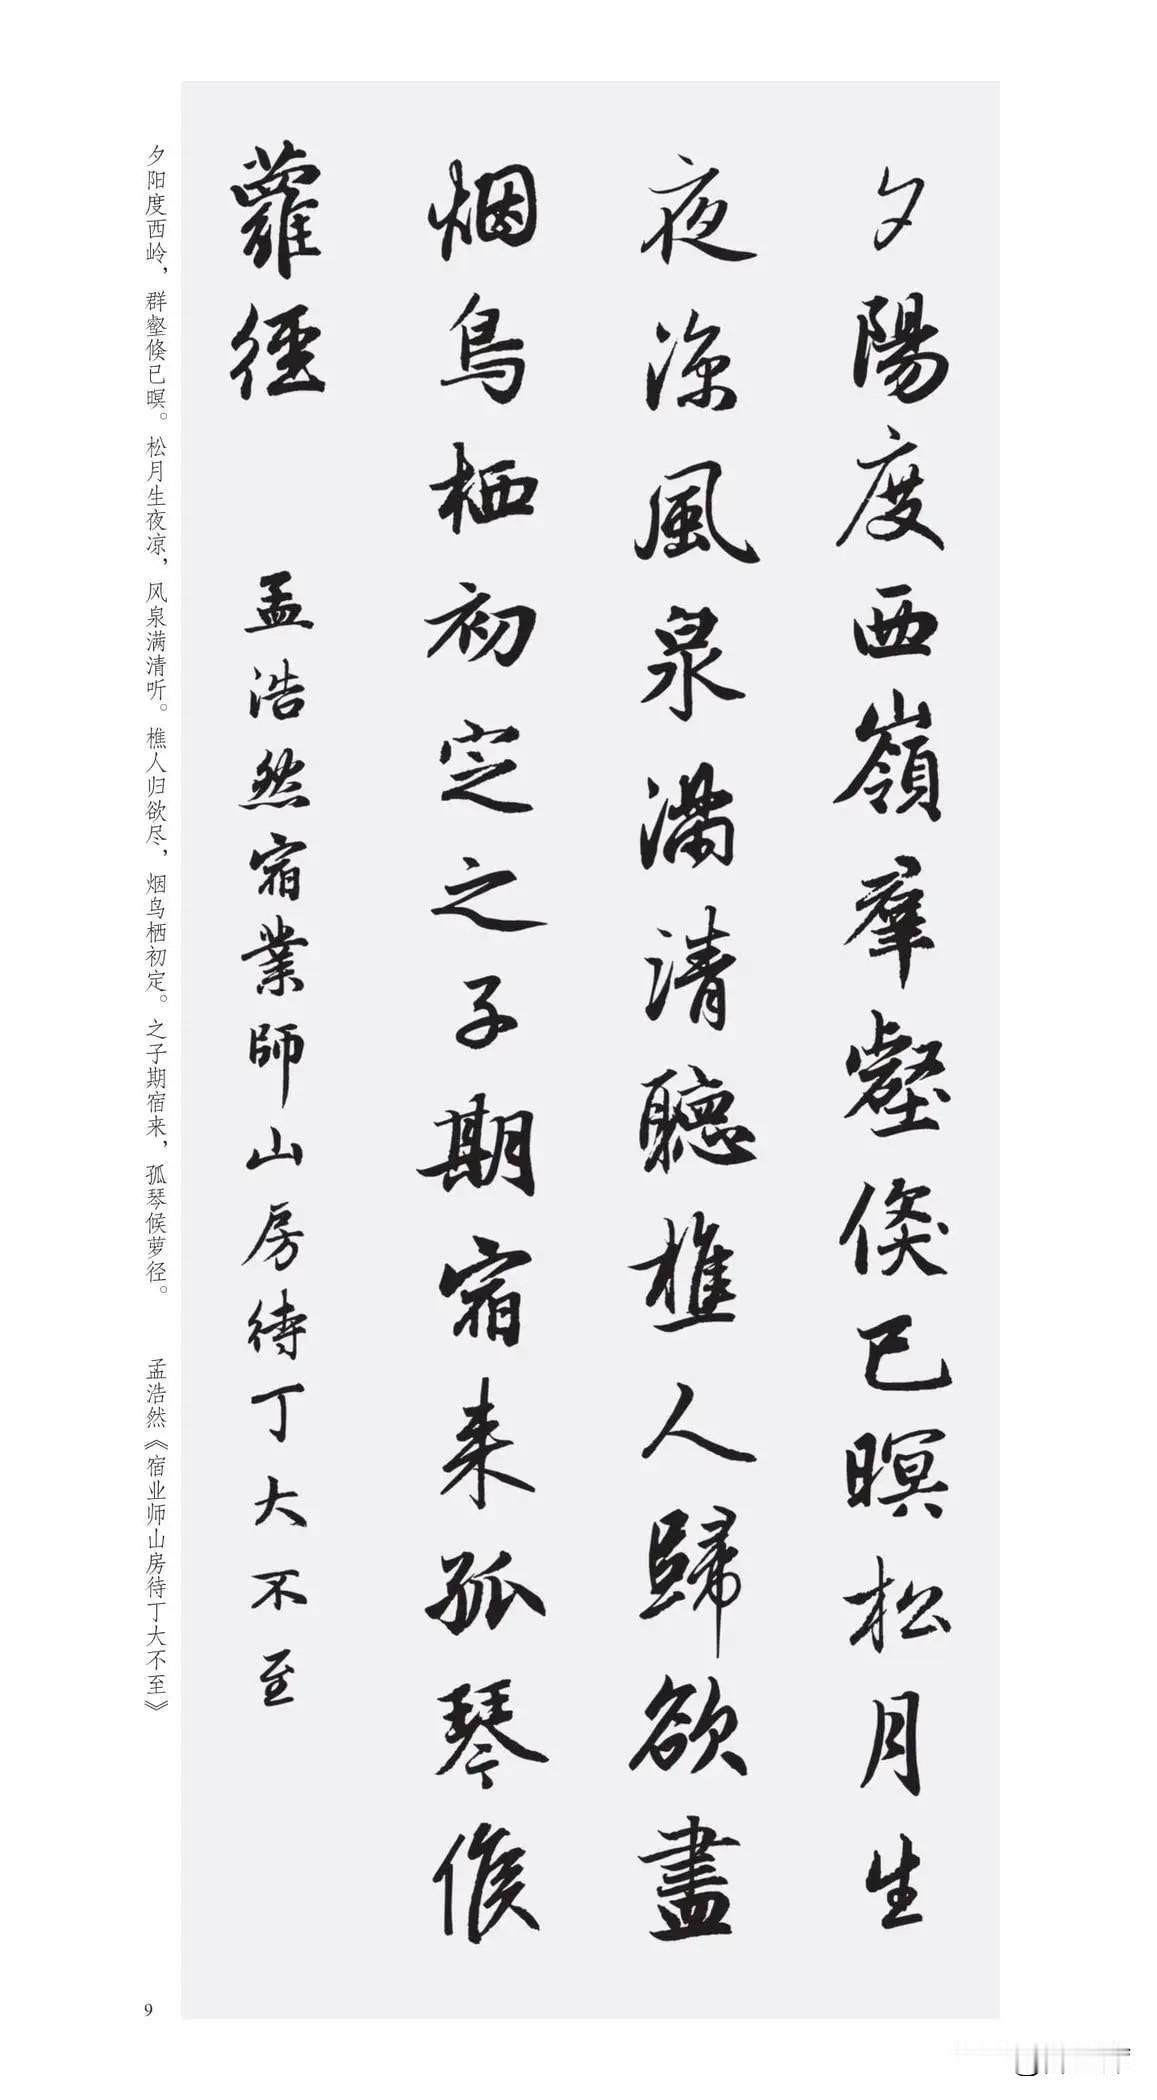 夕陽度西嶺羣壑倏已暝松月生
夜涼風泉滿清聽樵人歸欲盡
烟鳥栖初定之子期宿来孤琴候
蘿徑
孟浩然宿業師山房待丁大不至
夕阳度西岭，群壑倏已暝。松月生夜凉，风泉满清听。樵人归欲尽，烟鸟栖初定。之子期宿来，孤琴候萝径。 孟浩然《宿业师山房待丁大不至》
9